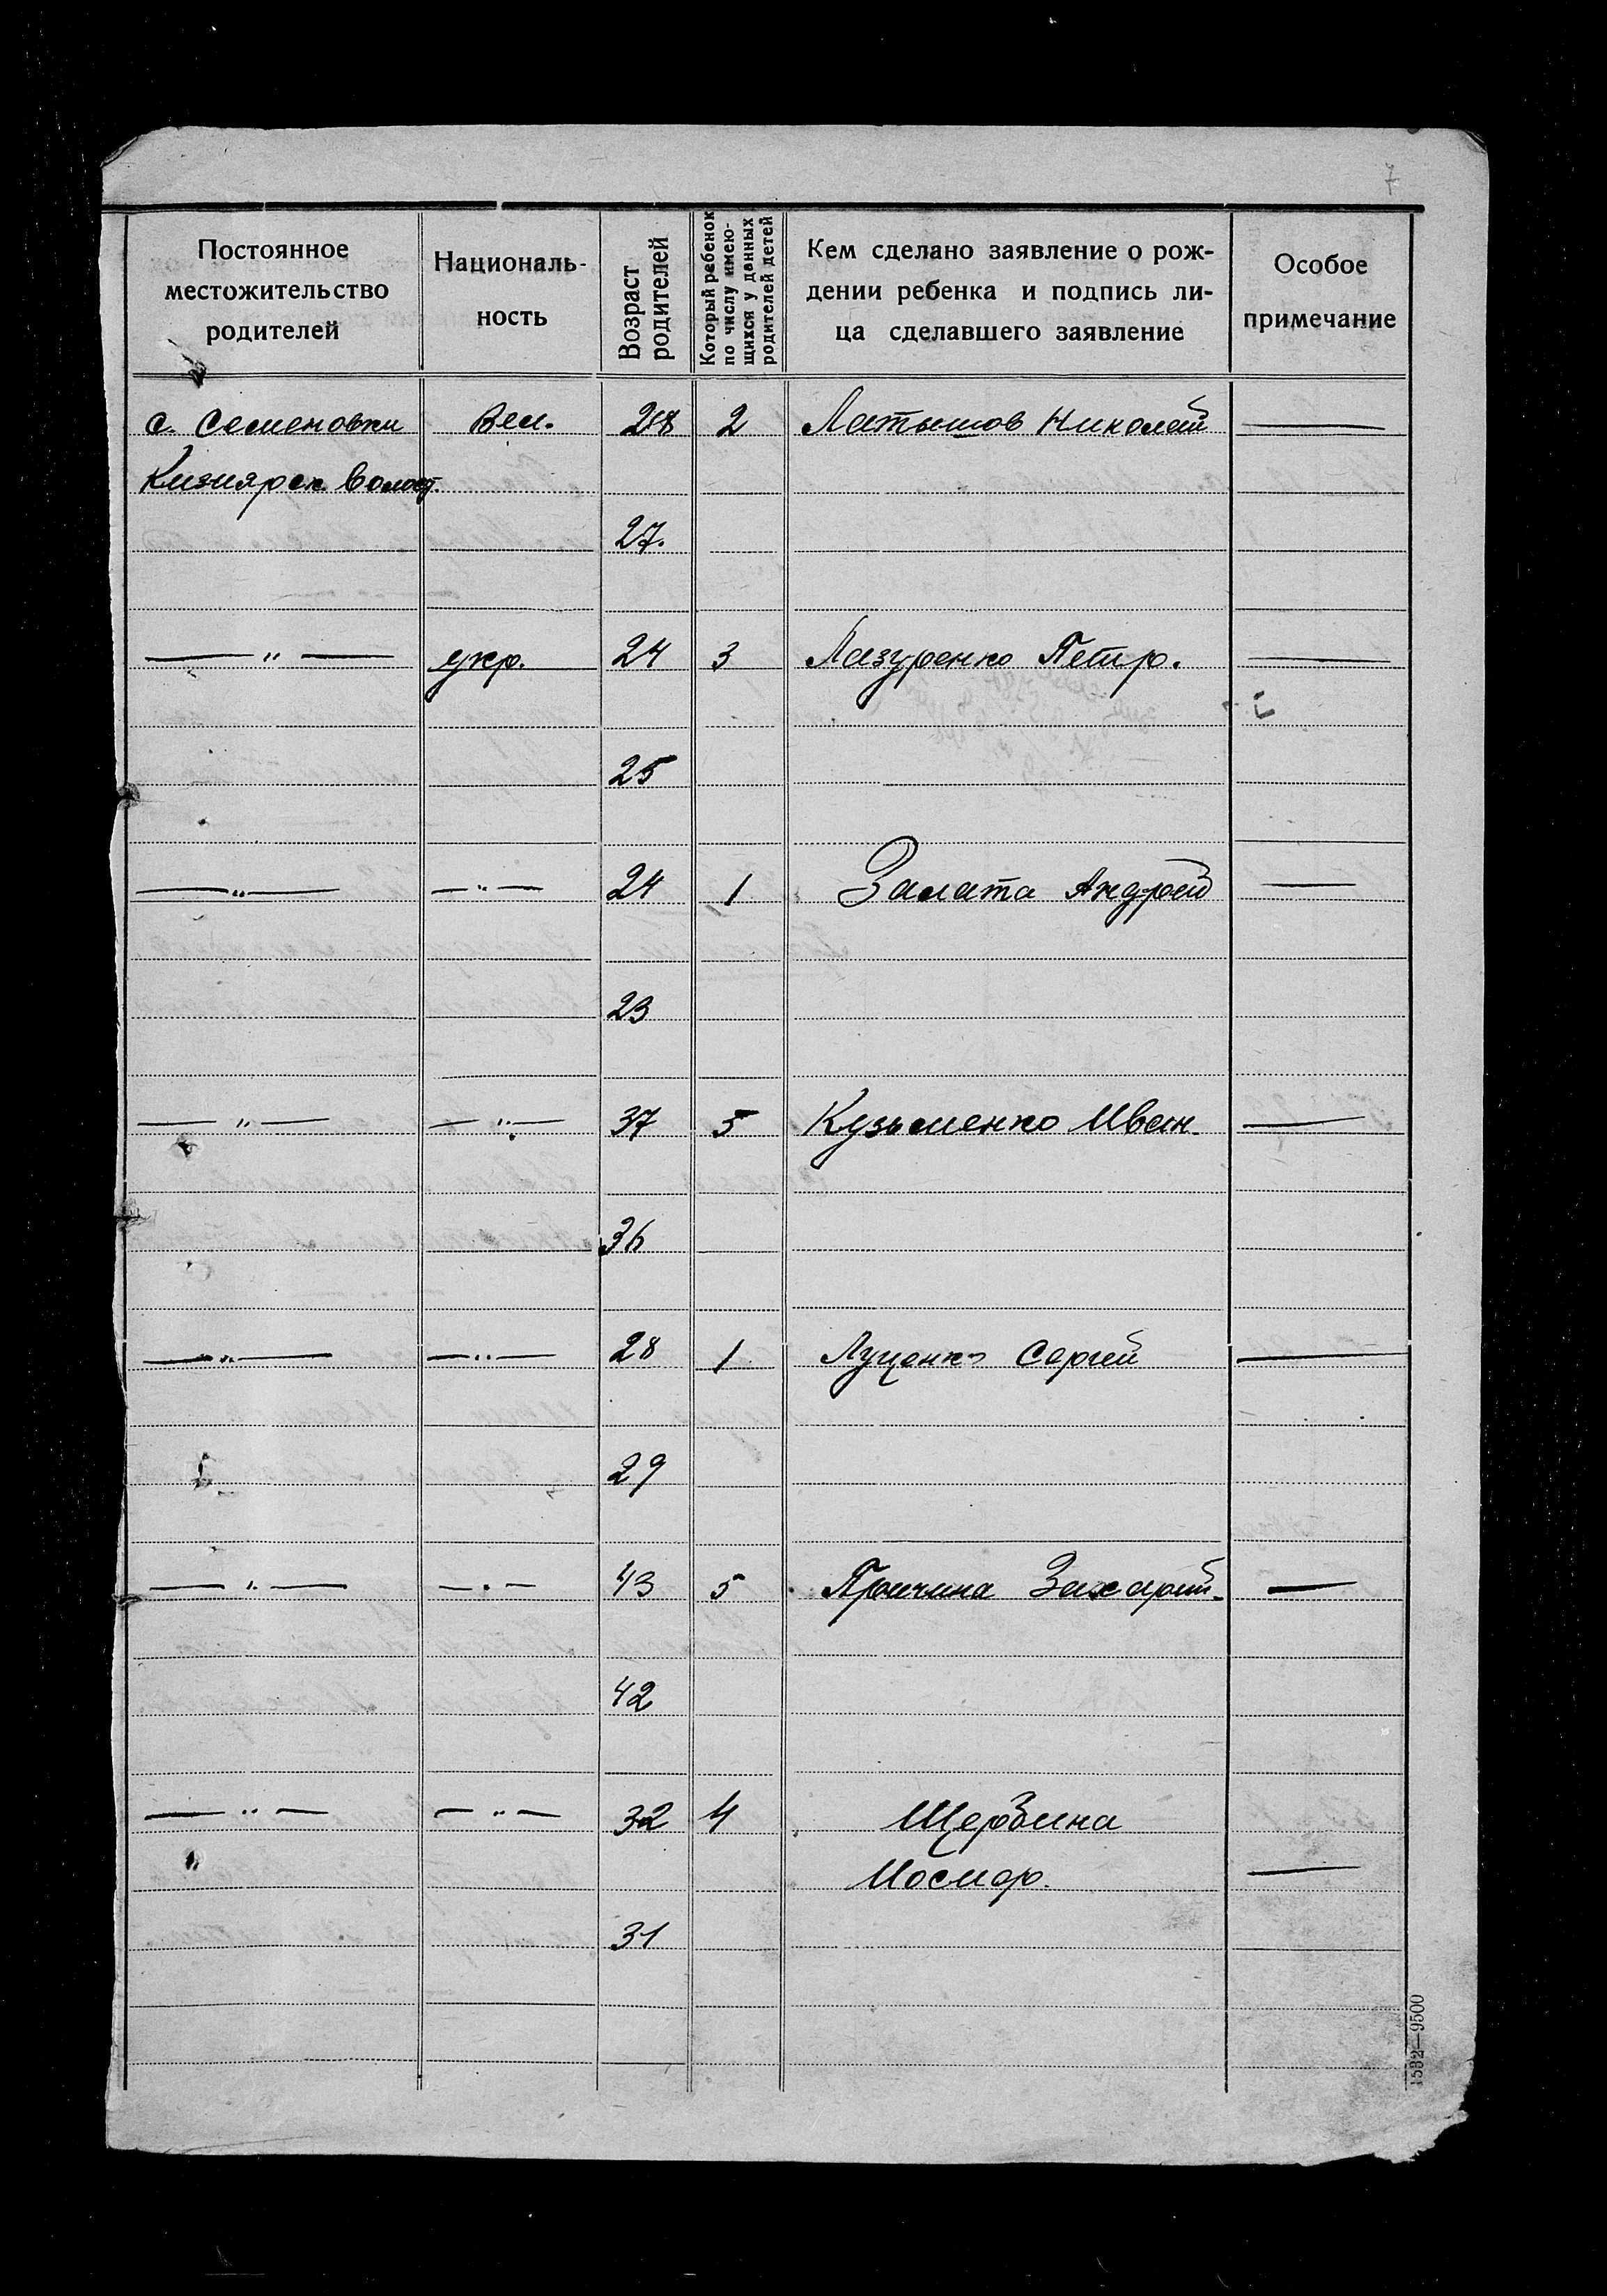 7
Постоянное
местожительство
родителей
Националь-
ность
Возраст
родителей
Который ребенок
по числу имею-
щихся у данных
родителей детей
Кем сделано заявление о рож-
дении ребенка и подпись ли-
ца сделавшего заявление
Особое
примечание
с. Семеновки Вел. 28 2 Латышов Николай —
Кизиярск. волост.
27.
— " — укр. 24 3 Лазуренко Петр. —
25
— " — — " — 24 1 Залата Андрей —
23
— " — — " — 37 5 Кузьменко Иван. —
36
— " — — " — 28 1 Луценко Сергей —
29
— " — — " — 43 5 Причина Захарий. —
42
— " — — " — 32 4 Щербина
" Иосиф. —
31
1532—9500